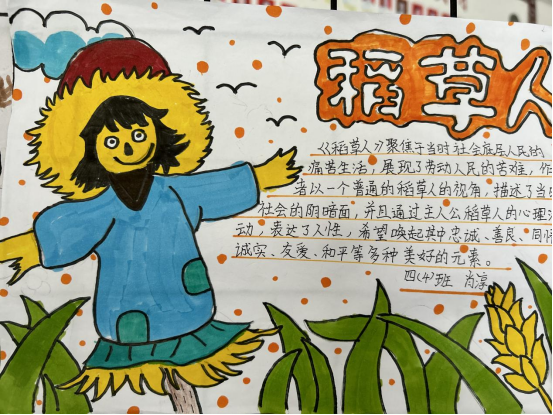 稻草人
《稻草人》聚焦于当时社会底层人民的
痛苦生活，展现了劳动人民的苦难，作
者以一个普通的稻草人的视角，描述了当
社会的阴暗面，并且通过主人公稻草人的心理
动，表达了人性，希望唤起其中忠诚、善良、同情
诚实、友爱、和平等多种美好的元素。
四(4)班 肖淳